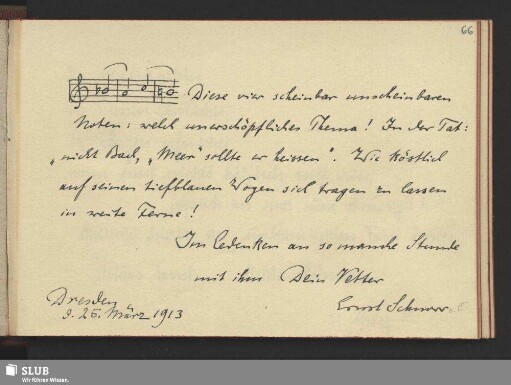 66
Diese vier scheinbar unscheinbaren
Noten: welch unerschöpfliches Thema! In der Tat:
„nicht Bach, „Meer" sollte er heissen". Wie köstlich
auf seinen tiefblauen Wogen sich tragen zu lassen
in weite Ferne!
Im Gedenken an so manche Stunde
mit ihm Dein Vetter
Dresden Ernst
d. 26. März 1913
SLUB
Wir führen Wissen.